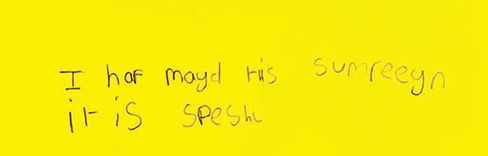 I haf mayd this sumreeyn
it is speshl